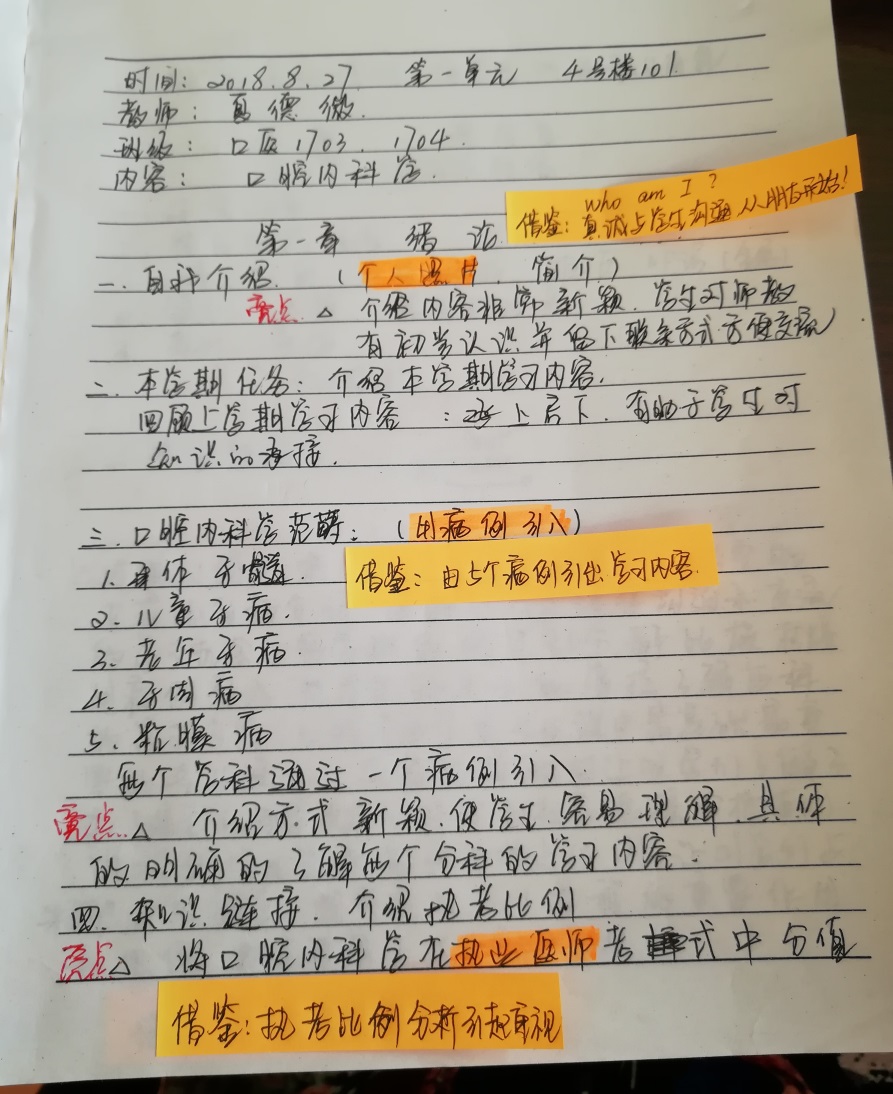 时间: 2018.8.27 第一单元 4号楼101
教师: 夏德薇.
班级: 口医1703. 1704.
内容: 口腔内科学.
who am I ?
借鉴: 真诚与学生沟通 从朋友开始!
第一章 绪论
一. 自我介绍. (个人照片. 简介)
亮点. △ 介绍内容非常新颖. 学生对师教
有初步认识并留下联系方式方便交流
二. 本学期任务: 介绍本学期学习内容.
回顾上学期学习内容 : 承上启下. 有助于学生对
知识的承接.
三. 口腔内科学范畴: (用病例引入)
借鉴: 由5个病例引出学习内容.
1. 牙体牙髓.
2. 儿童牙病.
3. 老年牙病.
4. 牙周病
5. 粘膜病
每个学科通过一个病例引入.
亮点.. △ 介绍方式新颖. 使学生容易理解. 具体
的明确的了解每个分科的学习内容.
四. 知识链接. 介绍执考比例
亮点△ 将口腔内科学在执业医师考试中分值
借鉴: 执考比例分析引起重视